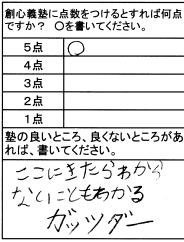 創心義塾に点数をつけるとすれば何点
ですか？ ○を書いてください。
5点 ○
4点
3点
2点
1点
塾の良いところ、良くないところがあ
れば、書いてください。
ここにきたらわから
ないこともわかる
ガッツダー